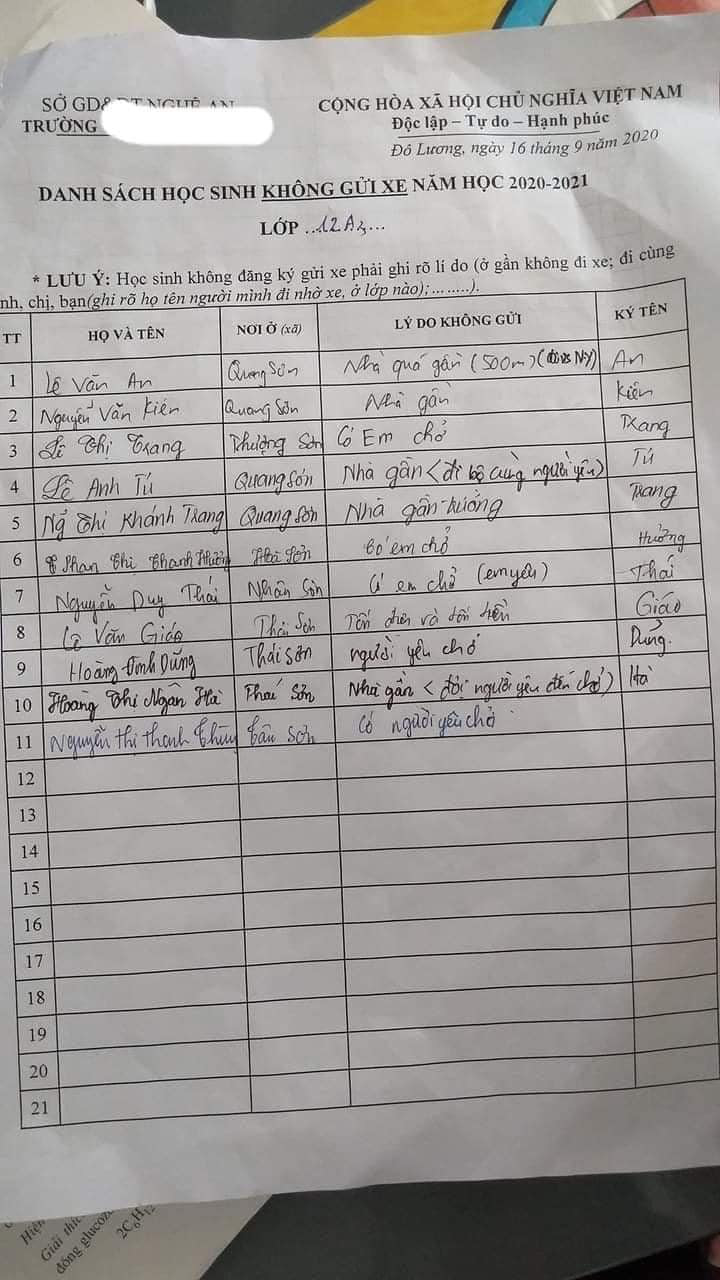 SỞ GD&ĐT NGHỆ AN
TRƯỜNG
CỘNG HÒA XÃ HỘI CHỦ NGHĨA VIỆT NAM
Độc lập – Tự do – Hạnh phúc
Đô Lương, ngày 16 tháng 9 năm 2020
DANH SÁCH HỌC SINH KHÔNG GỬI XE NĂM HỌC 2020-2021
LỚP ..12A3...
* LƯU Ý: Học sinh không đăng ký gửi xe phải ghi rõ lí do (ở gần không đi xe; đi cùng
nh, chị, bạn(ghi rõ họ tên người mình đi nhờ xe, ở lớp nào);........).
TT HỌ VÀ TÊN NƠI Ở (xã) LÝ DO KHÔNG GỬI KÝ TÊN
1 Lê Văn An Quang Sơn Nhà quá gần (500m) An
2 Nguyễn Văn Kiên Quang Sơn Nhà gần Kiên
3 Lê Thị Trang Thượng Sơn Có Em chở Trang
4 Lê Anh Tú Quang Sơn Nhà gần (đi bộ cùng người yêu) Tú
5 Ng̃ Thị Khánh Trang Quang Sơn Nhà gần Trang
6 Phan Thị Thanh Hường Hoà Sơn Có em chở Hường
7 Nguyễn Duy Thái Nhân Sơn Có em chở (em yêu) Thái
8 Lê Văn Giáo Thái Sơn Tốn điện và tốn tiền Giáo
9 Hoàng Đình Dũng Thái Sơn người yêu chở Dũng.
10 Hoàng Thị Ngân Hà Thái Sơn Nhà gần (đợi người yêu đến chở) Hà
11 Nguyễn thị thanh Thùy Tân Sơn Có người yêu chở
12
13
14
15
16
17
18
19
20
21
Giải thíc
đồng glucoz
2C₆H₁₂